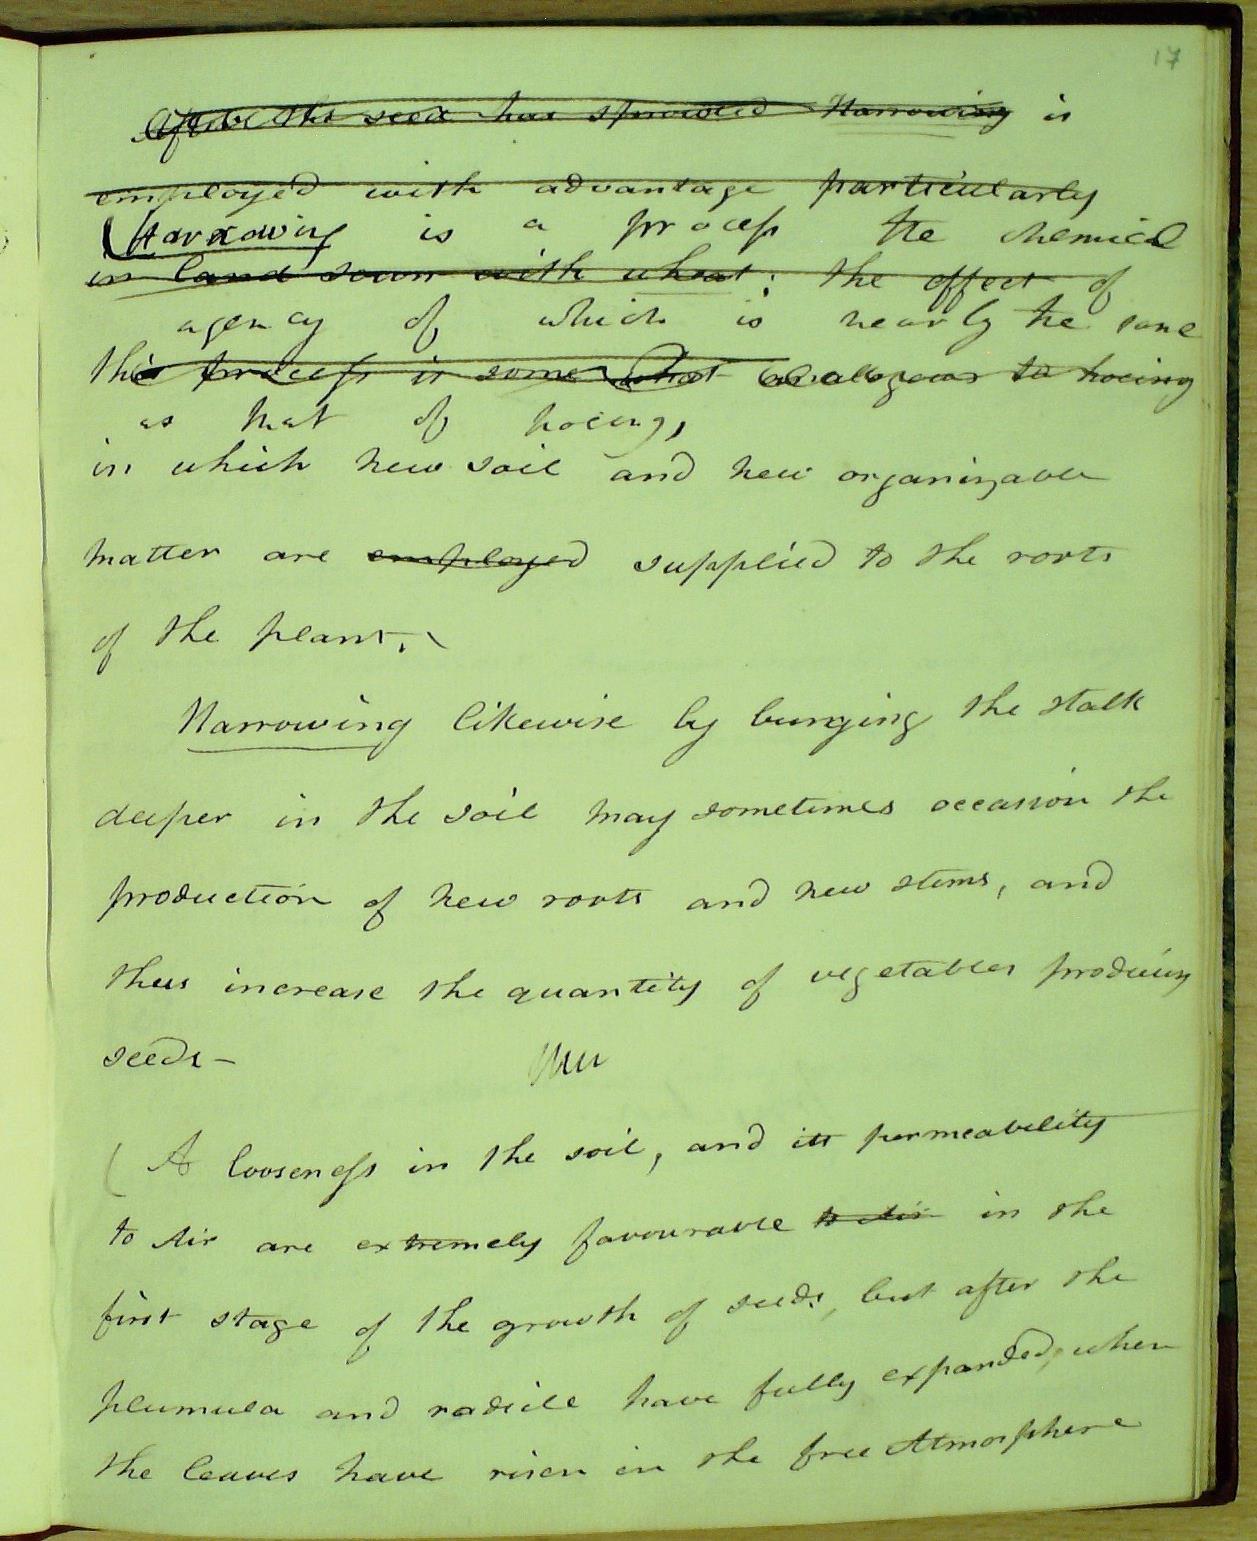 17
After the seed has sprouted Harrowing is
employed with advantage particularly
(Harrowing is a process the chemical
in land sown with wheat: the effect of
agency of which is nearly the same
this process is some what analogous to hoeing
as that of hoeing,
in which new soil and new organizable
matter are employed supplied to the roots
of the plant.
Harrowing likewise by burying the stalk
deeper in the soil may sometimes occasion the
production of new roots and new stems, and
thus increase the quantity of vegetables producing
seeds -
( A looseness in the soil, and its permeability
to Air are extremely favourable to Air in the
first stage of the growth of seeds, but after the
plumula and radicle have fully expanded, when
the leaves have risen in the free Atmosphere